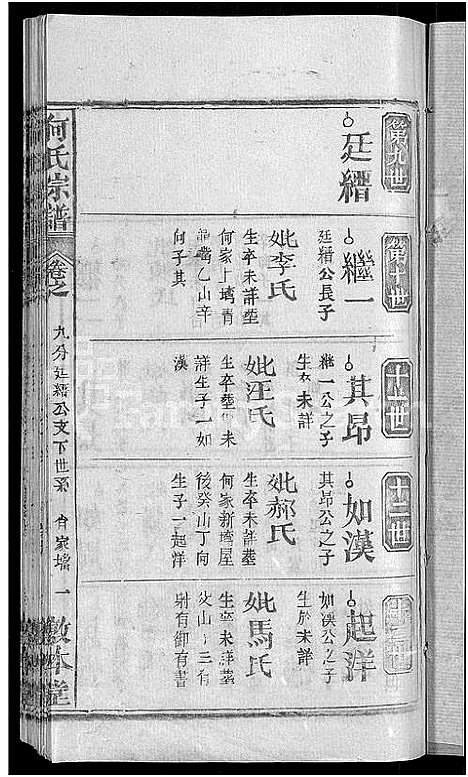 第九世
廷縉
第十世
繼一
廷縉公長子
妣李氏
生卒未詳塟
何家上塆青
山辛
何子其
十一世
其昂
繼一公之子
生 未詳
妣汪氏
生卒塟 未
詳生子一如
漢
十二世
如漢
其昂公之子
妣郝氏
生卒未詳塟
何家新塆屋
後癸山丁向
生子一起洋
起洋
如漢公之子
生於未詳
妣馬氏
生 未詳塟
山 三有
尉有御有書
何氏宗譜
卷之
九分廷縉公支下世系
一
敦本堂